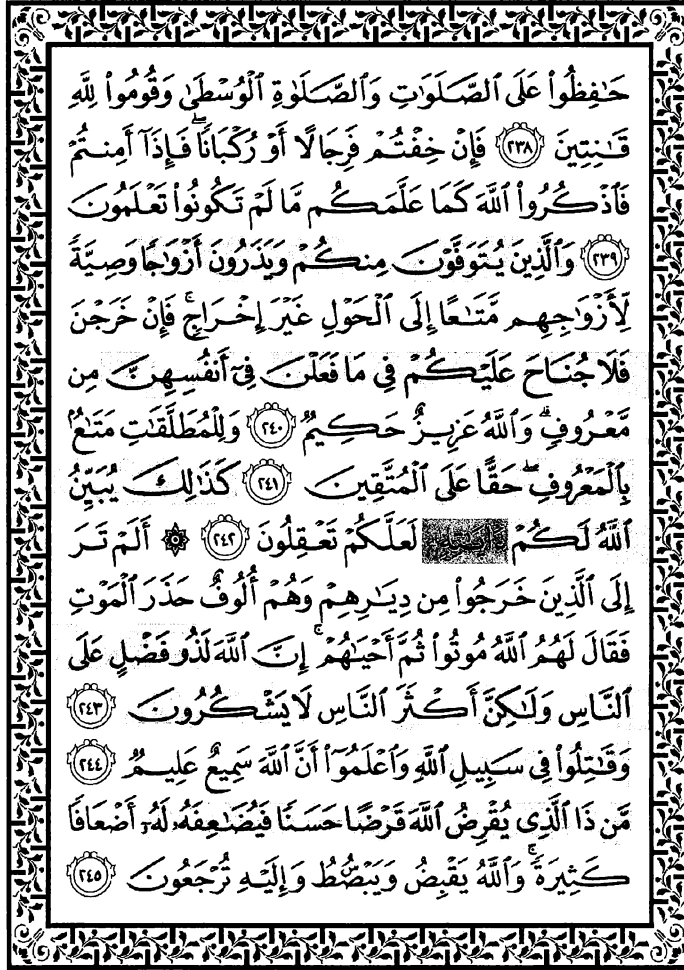 حَـٰفِظُوا۟ عَلَى ٱلصَّلَوَٰتِ وَٱلصَّلَوٰةِ ٱلْوُسْطَىٰ وَقُومُوا۟ لِلَّهِ
قَـٰنِتِينَ ﴿٢٣٨﴾ فَإِنْ خِفْتُمْ فَرِجَالًا أَوْ رُكْبَانًا ۖ فَإِذَآ أَمِنتُمْ
فَٱذْكُرُوا۟ ٱللَّهَ كَمَا عَلَّمَكُم مَّا لَمْ تَكُونُوا۟ تَعْلَمُونَ
﴿٢٣٩﴾ وَٱلَّذِينَ يُتَوَفَّوْنَ مِنكُمْ وَيَذَرُونَ أَزْوَٰجًا وَصِيَّةً
لِّأَزْوَٰجِهِم مَّتَـٰعًا إِلَى ٱلْحَوْلِ غَيْرَ إِخْرَاجٍ ۚ فَإِنْ خَرَجْنَ
فَلَا جُنَاحَ عَلَيْكُمْ فِى مَا فَعَلْنَ فِىٓ أَنفُسِهِنَّ مِن
مَّعْرُوفٍ ۗ وَٱللَّهُ عَزِيزٌ حَكِيمٌ ﴿٢٤٠﴾ وَلِلْمُطَلَّقَـٰتِ مَتَـٰعٌۢ
بِٱلْمَعْرُوفِ ۖ حَقًّا عَلَى ٱلْمُتَّقِينَ ﴿٢٤١﴾ كَذَٰلِكَ يُبَيِّنُ
ٱللَّهُ لَكُمْ لَعَلَّكُمْ تَعْقِلُونَ ﴿٢٤٢﴾ ۞ أَلَمْ تَرَ
إِلَى ٱلَّذِينَ خَرَجُوا۟ مِن دِيَـٰرِهِمْ وَهُمْ أُلُوفٌ حَذَرَ ٱلْمَوْتِ
فَقَالَ لَهُمُ ٱللَّهُ مُوتُوا۟ ثُمَّ أَحْيَـٰهُمْ ۚ إِنَّ ٱللَّهَ لَذُو فَضْلٍ عَلَى
ٱلنَّاسِ وَلَـٰكِنَّ أَكْثَرَ ٱلنَّاسِ لَا يَشْكُرُونَ ﴿٢٤٣﴾
وَقَـٰتِلُوا۟ فِى سَبِيلِ ٱللَّهِ وَٱعْلَمُوٓا۟ أَنَّ ٱللَّهَ سَمِيعٌ عَلِيمٌ ﴿٢٤٤﴾
مَّن ذَا ٱلَّذِى يُقْرِضُ ٱللَّهَ قَرْضًا حَسَنًا فَيُضَـٰعِفَهُۥ لَهُۥٓ أَضْعَافًا
كَثِيرَةً ۚ وَٱللَّهُ يَقْبِضُ وَيَبْصُۜطُ وَإِلَيْهِ تُرْجَعُونَ ﴿٢٤٥﴾